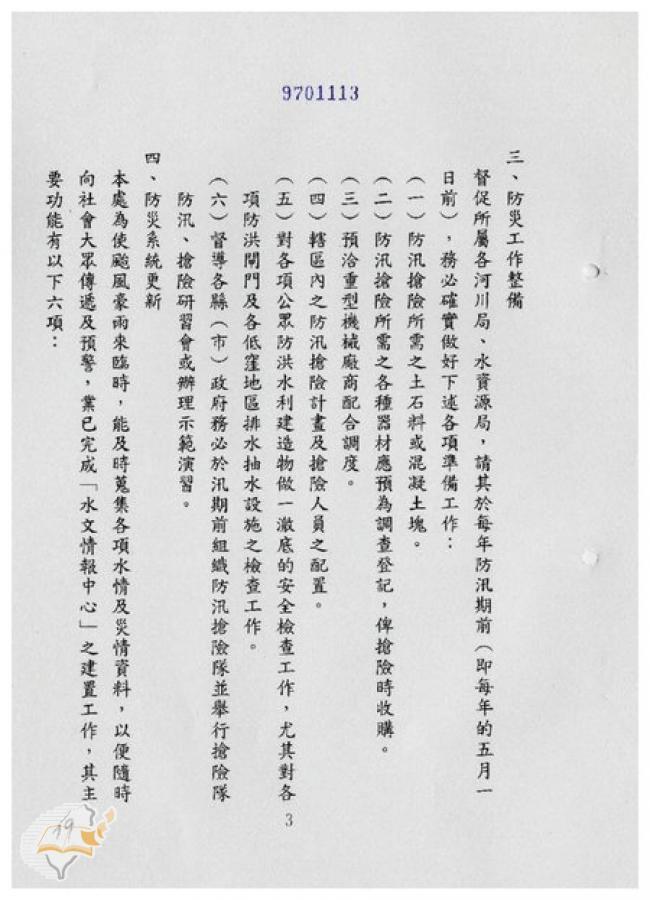 9701113
三、防災工作整備
督促所屬各河川局、水資源局，請其於每年防汛期前（即每年的五月一
日前），務必確實做好下述各項準備工作：
（一）防汛搶險所需之土石料或混凝土塊。
（二）防汛搶險所需之各種器材應預為調查登記，俾搶險時收購。
（三）預洽重型機械廠商配合調度。
（四）轄區內之防汛搶險計畫及搶險人員之配置。
（五）對各項公眾防洪水利建造物做一澈底的安全檢查工作，尤其對各
項防洪閘門及各低窪地區排水抽水設施之檢查工作。
（六）督導各縣（市）政府務必於汛期前組織防汛搶險隊並舉行搶險隊
防汛、搶險研習會或辦理示範演習。
四、防災系統更新
本處為使颱風豪雨來臨時，能及時蒐集各項水情及災情資料，以便隨時
向社會大眾傳遞及預警，業已完成「水文情報中心」之建置工作，其主
要功能有以下六項：
3
19